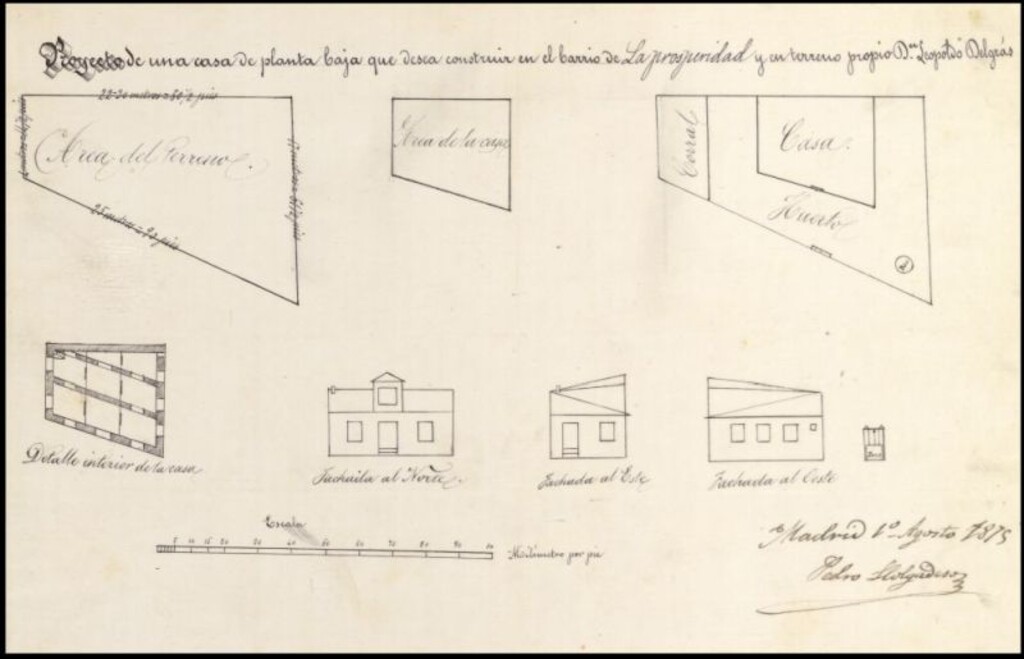 Proyecto de una casa de planta baja que desea construir en el barrio de La prosperidad y en terreno propio D.ⁿ Leopoldo Delgrás
22 30 metros = 80 1/2 pis
Area del Terreno.
25 metros = 9 pis
Area de la casa
Corral
Casa.
Huerto
Detalle interior de la casa
Fachada al Norte
Fachada al Este
Fachada al Oeste
Pozo
Escala
5 10 15 20 30 40 50 60 70 80 90 100
Milimetro por pie
Madrid 1º Agosto 1875
Pedro